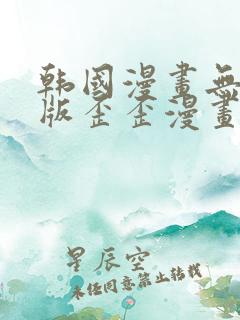 韩國漫畫無
版歪歪漫畫
星辰空
未经同意禁止转载